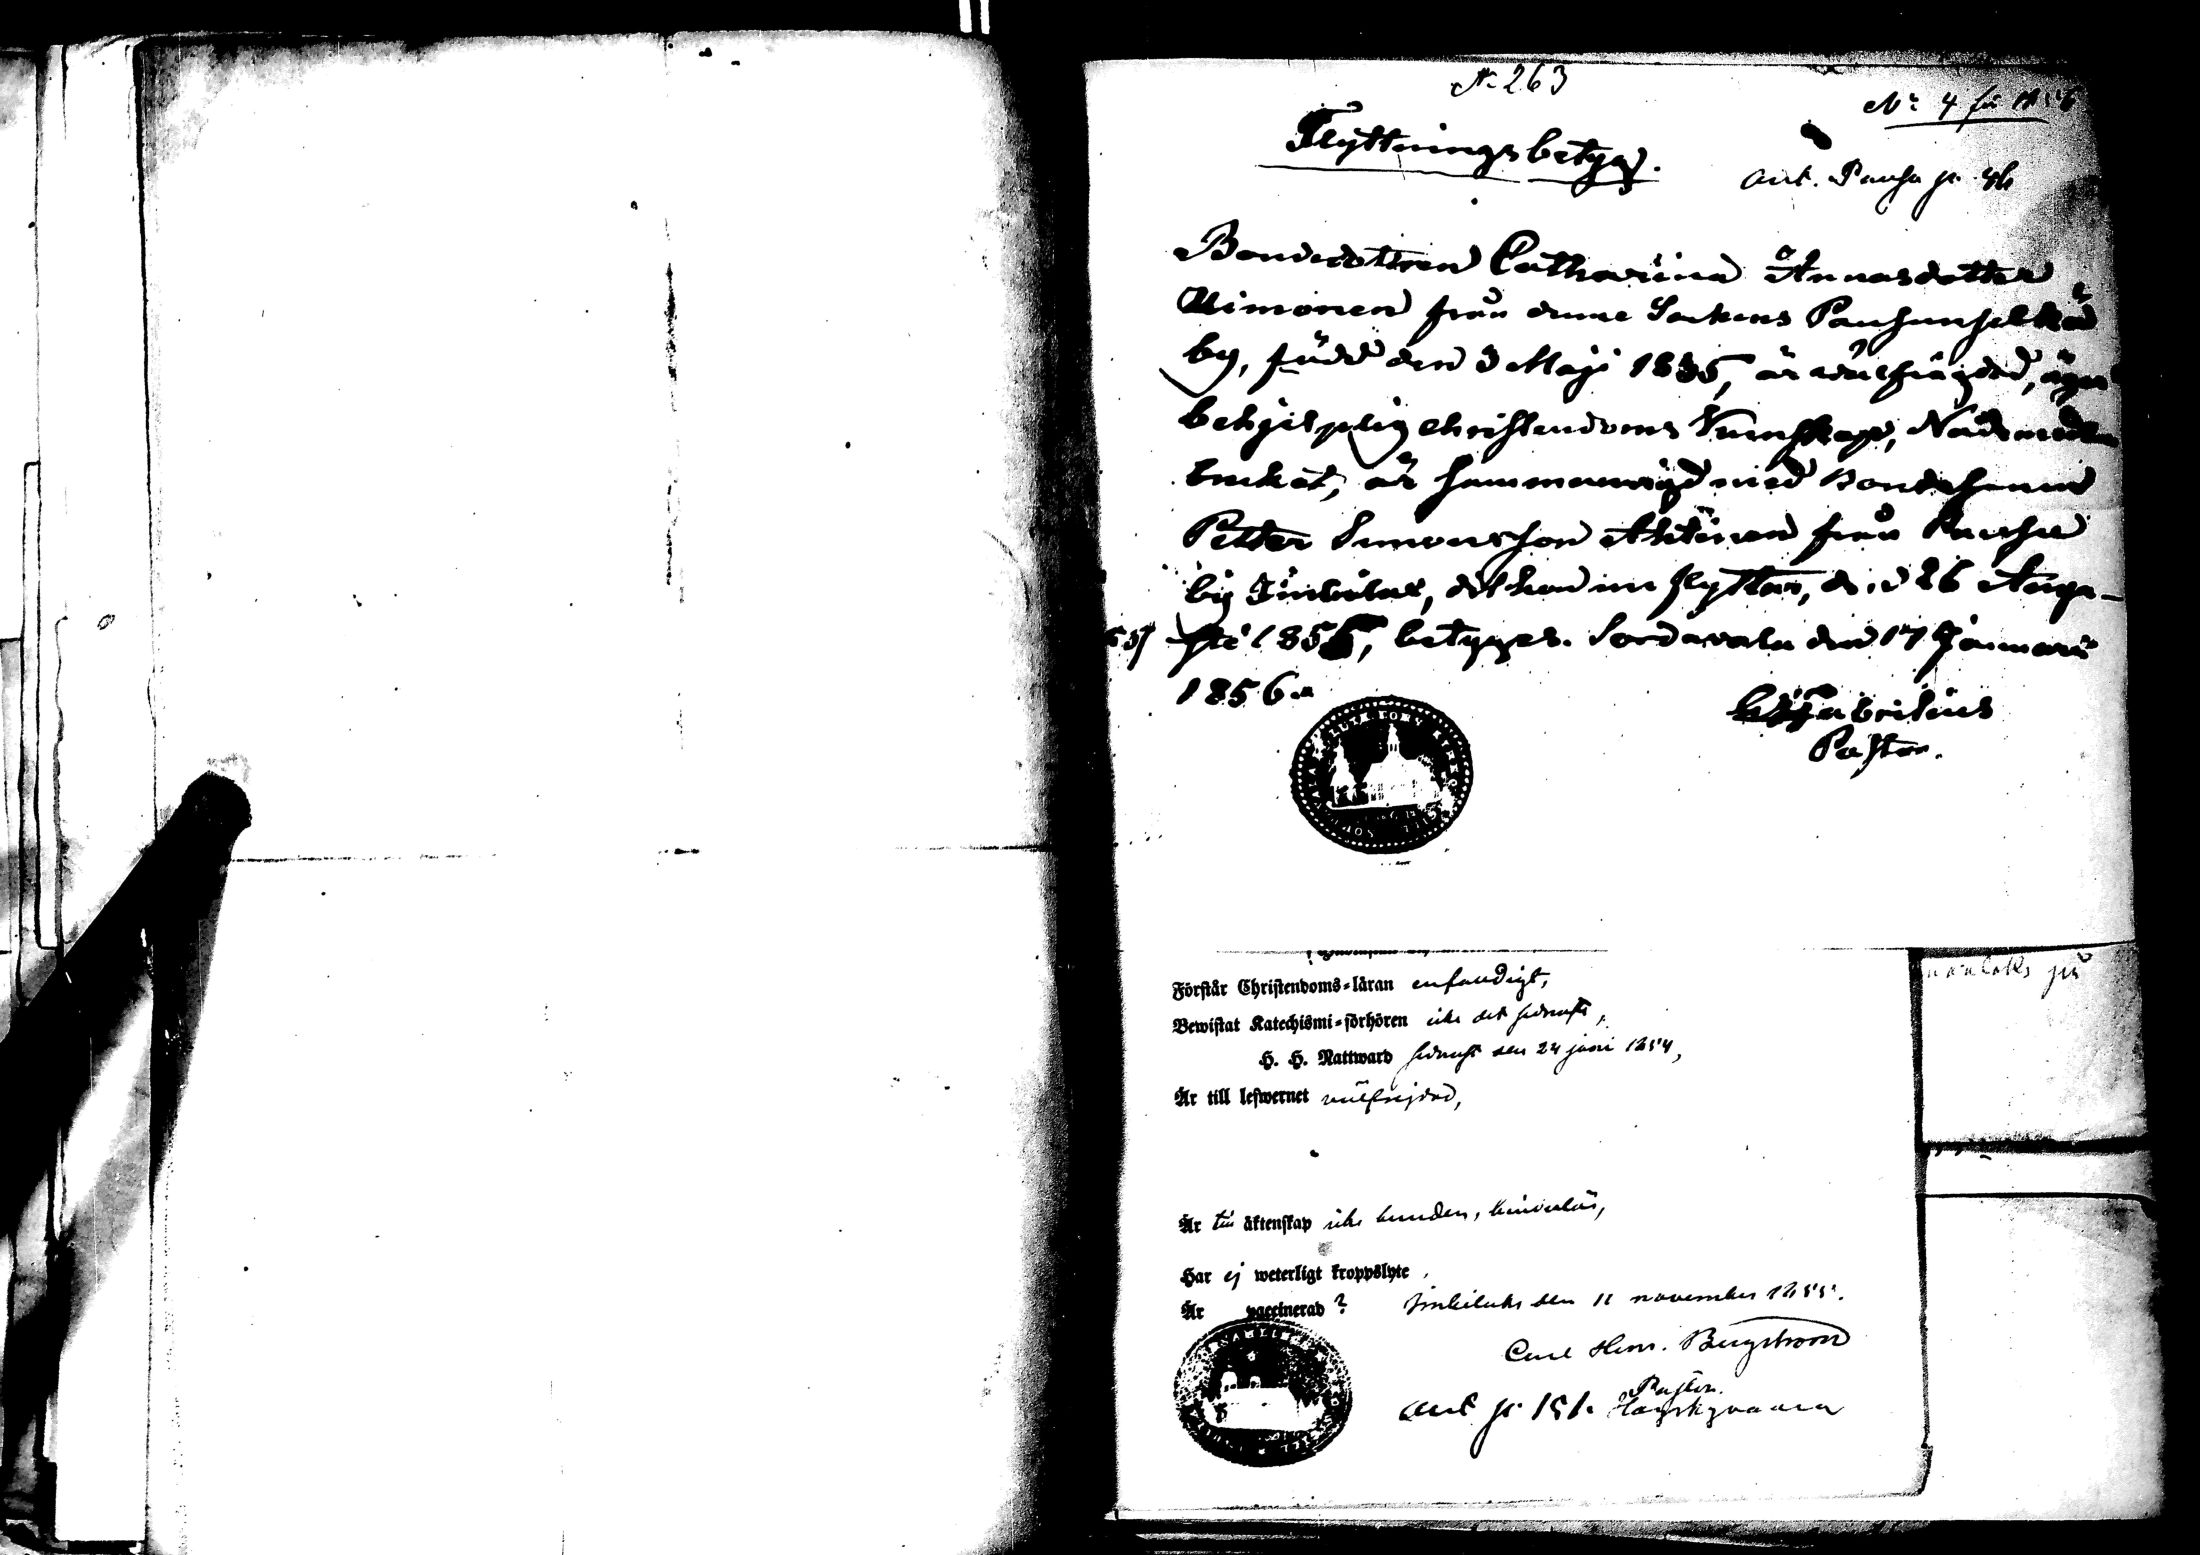 N. 263
Nº 4 för 1856
Flyttningsbetyg.
ant. Pausu p. 46
Bondedottren Catharina Annasdotter
Uimonen från denne Sockens
by, född den 3 Maji 1835, är wälfrägdad, äger
behjelplig christendoms kunskap, Nådemedlen
brukat, är sammanwigd med Bondesonen
Petter Simonsson från Pausu
by Imbilax, dit hon nu flyttar, den 26 Augu-
55/ sti 1855, betygges. Sordavala den 17 Januarii
1856.
Fabritius
Pastor.
Förstår Christendoms-läran enfaldigt,
Bewistat Katechismi-förhören icke det sednaste,
H. H. Nattward sednast den 24 juni 1854,
Är till lefwernet wälfrejdad,
Är till äktenskap icke bunden,
Har ej weterligt kroppslyte,
Är vaccinerad? Imbilaks den 11 november 1855.
Carl Henr. Bergstroem
Pastor.
ant p. 151.